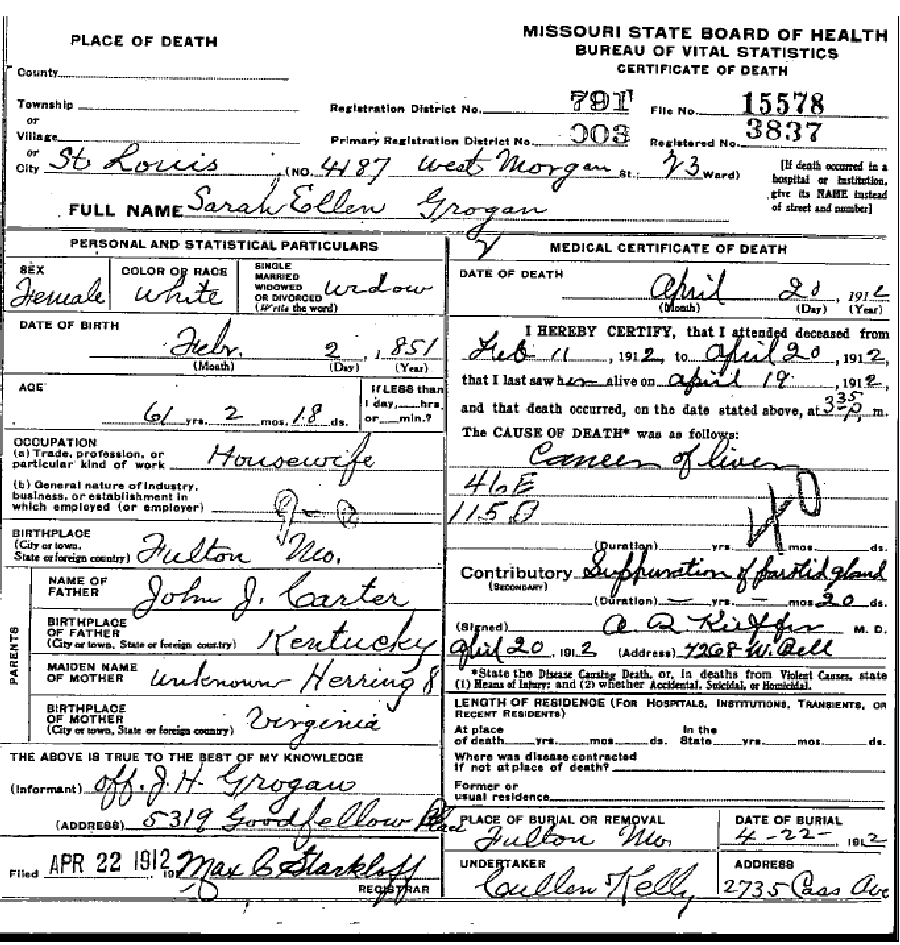 PLACE OF DEATH
County
Township
or
Village
or
City St Louis
MISSOURI STATE BOARD OF HEALTH
BUREAU OF VITAL STATISTICS
CERTIFICATE OF DEATH
Registration District No. 791 File No. 15578
Primary Registration District No. 003 Registered No. 3837
(NO. 4187 West Morgan St.; 23 Ward)
[If death occurred in a
hospital or institution,
give its NAME instead
of street and number]
FULL NAME Sarah Ellen Grogan
PERSONAL AND STATISTICAL PARTICULARS
SEX
Female
COLOR OR RACE
White
SINGLE
MARRIED
WIDOWED
OR DIVORCED
(Write the word)
Widow
DATE OF BIRTH
Febr. 2, 1851
(Month) (Day) (Year)
AGE
61 yrs. 2 mos. 18 ds.
If LESS than
1 day, hrs.
or min.?
OCCUPATION
(a) Trade, profession, or
particular kind of work Housewife
(b) General nature of industry,
business, or establishment in
which employed (or employer)
BIRTHPLACE
(City or town,
State or foreign country) Fulton Mo.
PARENTS
NAME OF
FATHER John J. Carter
BIRTHPLACE
OF FATHER
(City or town, State or foreign country) Kentucky
MAIDEN NAME
OF MOTHER Unknown Herring
BIRTHPLACE
OF MOTHER
(City or town, State or foreign country) Virginia
THE ABOVE IS TRUE TO THE BEST OF MY KNOWLEDGE
(Informant) Off. J. H. Grogan
(ADDRESS) 5319 Goodfellow Place
Filed APR 22 1912 Max C Starkloff
REGISTRAR
MEDICAL CERTIFICATE OF DEATH
DATE OF DEATH
April 20, 1912
(Month) (Day) (Year)
I HEREBY CERTIFY, that I attended deceased from
Feb 11, 1912, to April 20, 1912,
that I last saw her alive on April 19, 1912,
and that death occurred, on the date stated above, at 3 35 P. m.
The CAUSE OF DEATH* was as follows:
Cancer of liver
46E
115D
40
(Duration) yrs. mos. ds.
Contributory Suppuration of parotid gland
(SECONDARY)
(Duration) — yrs. — mos. 20 ds.
(Signed) M. D.
April 20, 1912 (Address)
*State the Disease Causing Death, or, in deaths from Violent Causes, state
(1) Means of Injury; and (2) whether Accidental, Suicidal, or Homicidal.
LENGTH OF RESIDENCE (FOR HOSPITALS, INSTITUTIONS, TRANSIENTS, OR
RECENT RESIDENTS)
At place
of death yrs. mos. ds.
In the
State yrs. mos. ds.
Where was disease contracted
if not at place of death?
Former or
usual residence
PLACE OF BURIAL OR REMOVAL
Fulton Mo.
DATE OF BURIAL
4-22- 1912
UNDERTAKER
Cullen Kelly
ADDRESS
2735 Cass Ave